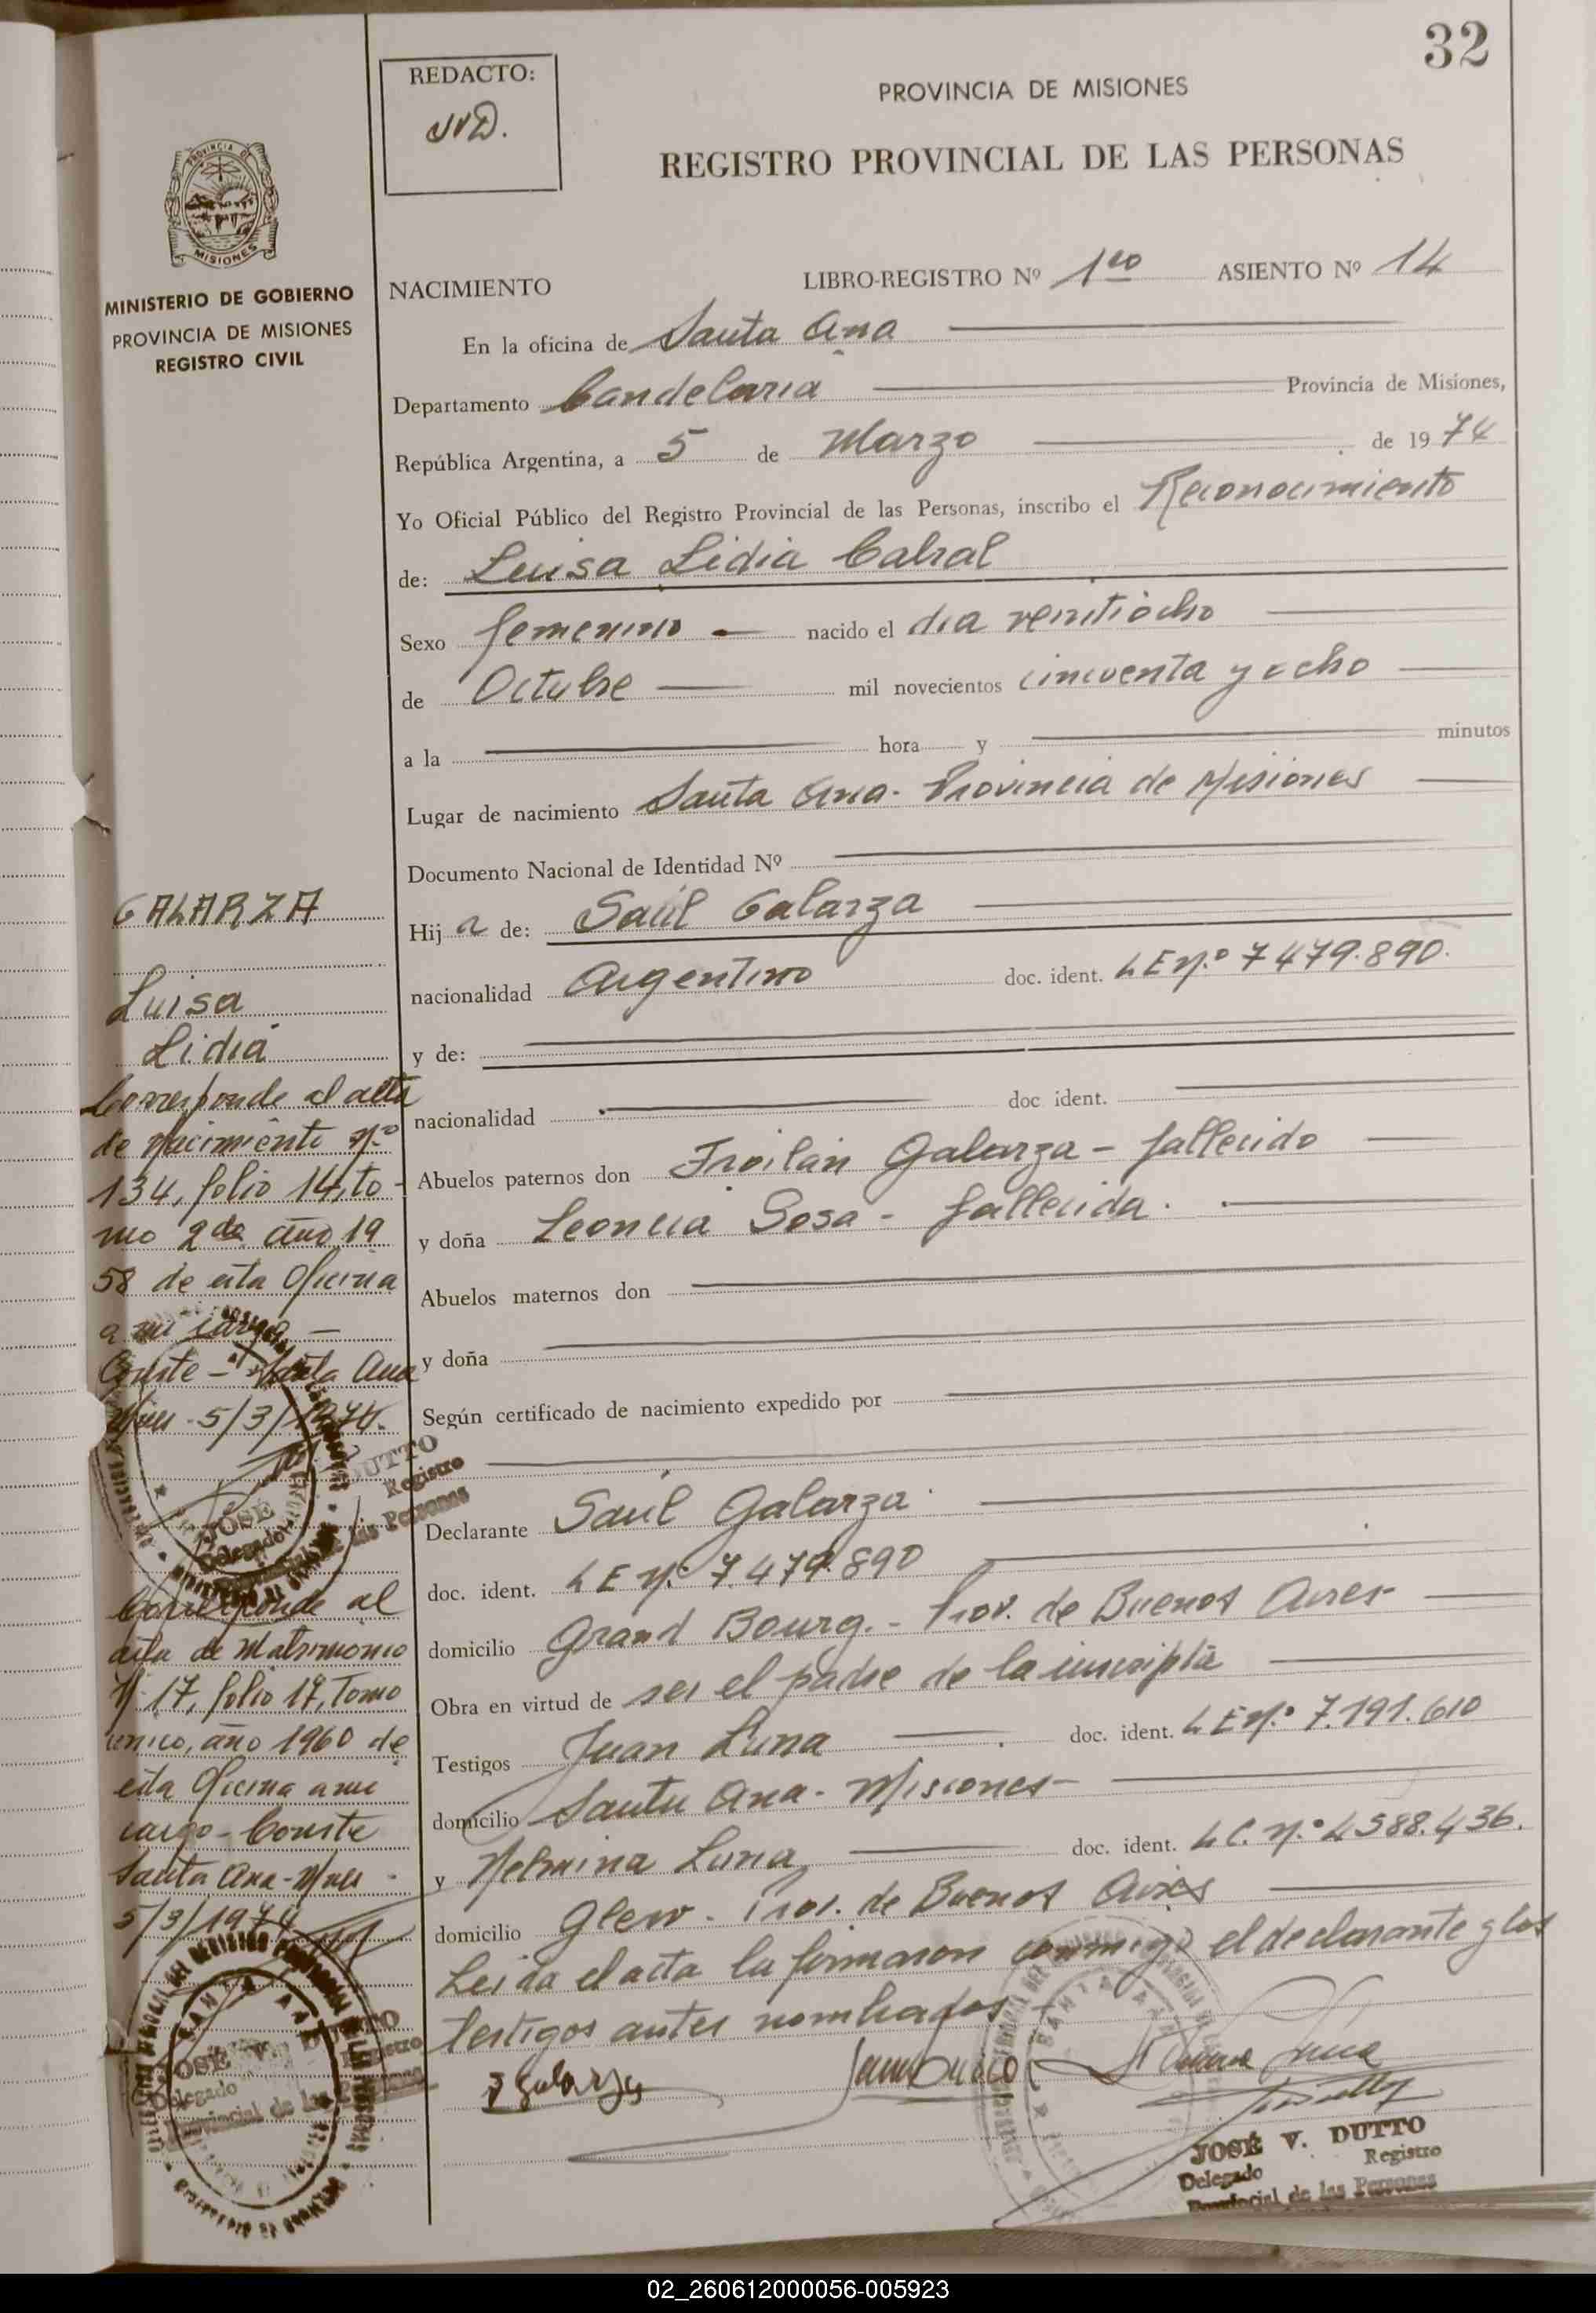 32
REDACTO:
JVD.
PROVINCIA DE MISIONES
REGISTRO PROVINCIAL DE LAS PERSONAS
PROVINCIA DE
MISIONES
MINISTERIO DE GOBIERNO
PROVINCIA DE MISIONES
REGISTRO CIVIL
NACIMIENTO LIBRO-REGISTRO Nº 1ro ASIENTO Nº 14
En la oficina de Santa Ana
Departamento Candelaria Provincia de Misiones,
República Argentina, a 5 de Marzo de 1974
Yo Oficial Público del Registro Provincial de las Personas, inscribo el Reconocimiento
de: Luisa Lidia Cabral
Sexo femenino — nacido el día veintiocho
de Octubre mil novecientos cincuenta y ocho
a la hora y minutos
Lugar de nacimiento Santa Ana - Provincia de Misiones
Documento Nacional de Identidad Nº
Hija de: Saúl Galarza
nacionalidad Argentino doc. ident. L E Nº 7479.890.
y de:
nacionalidad doc ident.
Abuelos paternos don Froilán Galarza - fallecido
y doña Leoncia Sosa - fallecida.
Abuelos maternos don
y doña
Según certificado de nacimiento expedido por
Declarante Saúl Galarza
doc. ident. L E Nº 7.479.890
domicilio Grand Bourg. - Prov. de Buenos Aires
Obra en virtud de ser el padre de la inscripta
Testigos Juan Luna doc. ident. L E Nº 7.191.610
domicilio Santa Ana - Misiones
y Luna doc. ident. L C. Nº 4588.436.
domicilio Glew - Prov. de Buenos Aires
Leída el acta la firmaron conmigo el declarante y los
testigos antes nombrados
S Galarza
JOSÉ V. DUTTO
Delegado Registro
Provincial de las Personas
GALARZA
Luisa
Lidia
Corresponde al acta
de Nacimiento Nº
134, folio 14, to-
mo 2do año 19
58 de esta Oficina
a mi cargo —
Conste - Santa Ana
Mnes - 5/3/1974.
JOSÉ DUTTO
Delegado Registro
las Personas
Corresponde al
acta de Matrimonio
Nº 17, folio 17, Tomo
único, año 1960 de
esta Oficina a mi
cargo - Conste
Santa Ana - Mnes -
5/3/1974
JOSÉ V. DUTTO
Delegado Registro
Provincial de las Personas
02_260612000056-005923